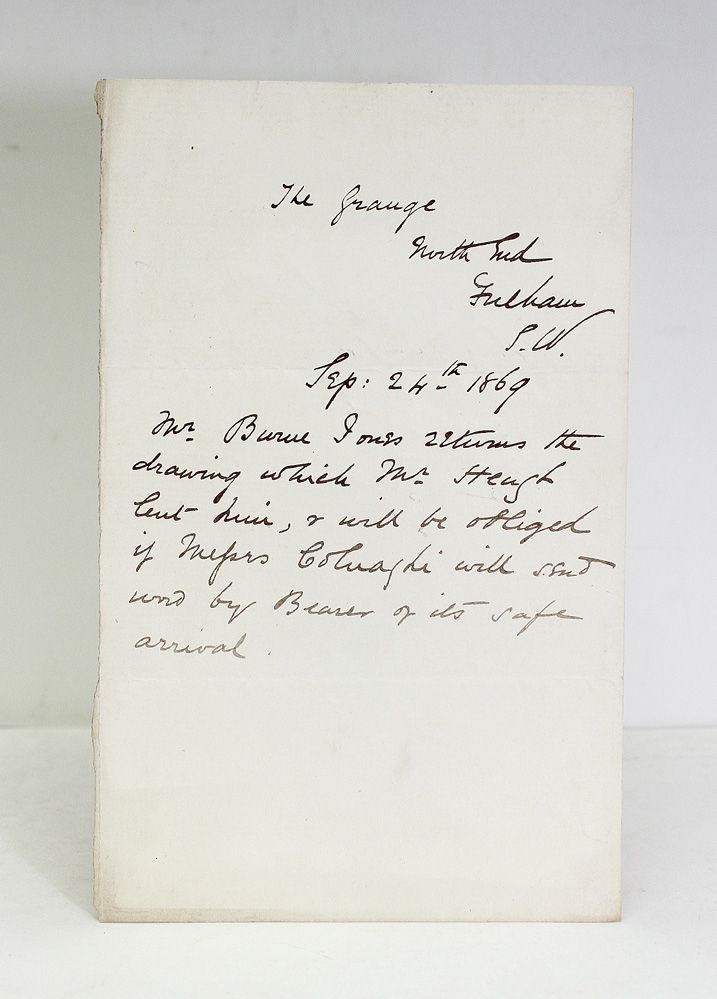 The Grange
North End
Fulham
S.W.
Sep: 24th 1869
Mr. Burne Jones returns the
drawing which Mr. Heugh
lent him, & will be obliged
if Messrs Colnaghi will send
word by Bearer of its safe
arrival.